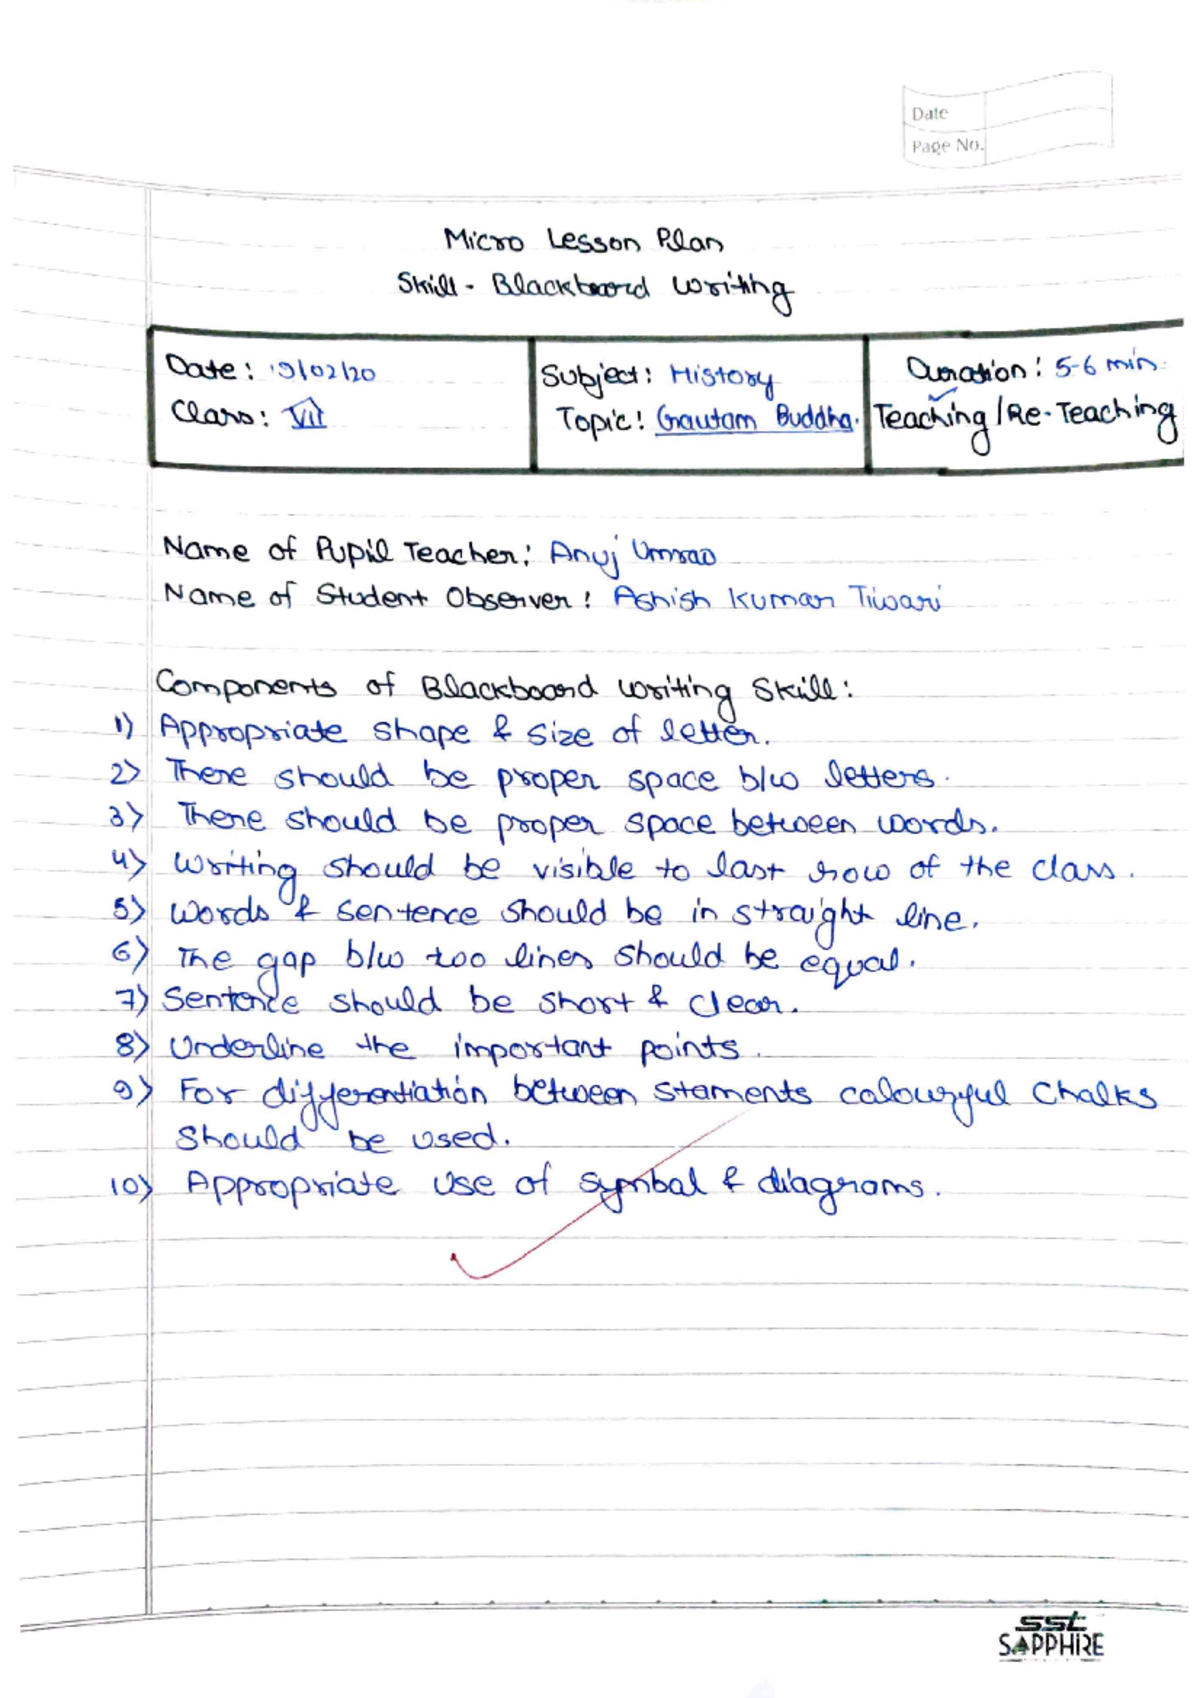 Date
Page No.
Micro Lesson Plan
Skill - Blackboard Writing
Date: 19/02/20
Class: VII
Subject: History
Topic: Gautam Buddha.
Duration: 5-6 min.
Teaching/Re-Teaching
Name of Pupil Teacher: Anuj Umrao
Name of Student Observer: Ashish Kumar Tiwari
Components of Blackboard Writing Skill:
1) Appropriate shape & size of letter.
2) There should be proper space b/w letters.
3) There should be proper space between words.
4) Writing should be visible to last row of the class.
5) Words & sentence should be in straight line.
6) The gap b/w too lines should be equal.
7) Sentence should be short & clear.
8) Underline the important points.
9) For differentiation between staments colourful chalks
should be used.
10) Appropriate use of symbal & diagrams.
sst
SAPPHIRE